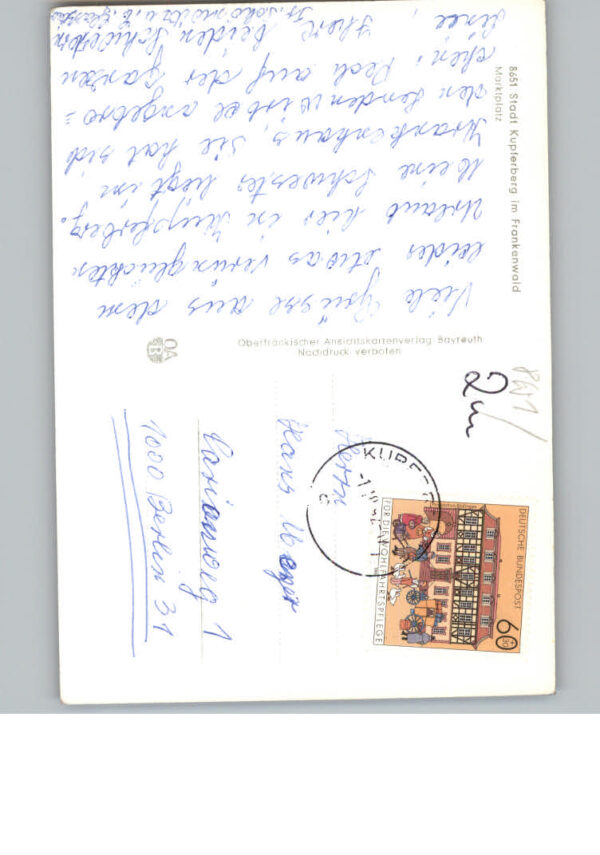 8651 Stadt Kupferberg im Frankenwald
Marktplatz
Viele Grüsse aus dem
leider etwas verunglückten
Urlaub hier in Kupferberg.
Meine Schwester liegt im
Krankenhaus, sie hat sich
den Lendenwirbel angebro=
chen. Pech auf der ganzen
Ihre beiden Schwestern
Oberfränkischer Ansichtskartenverlag Bayreuth
Nachdruck verboten
OA
8651
KUPFER
DEUTSCHE BUNDESPOST
60
FÜR DIE WOHLFAHRTSPFLEGE
Herrn
Hans
1
1000 Berlin 31